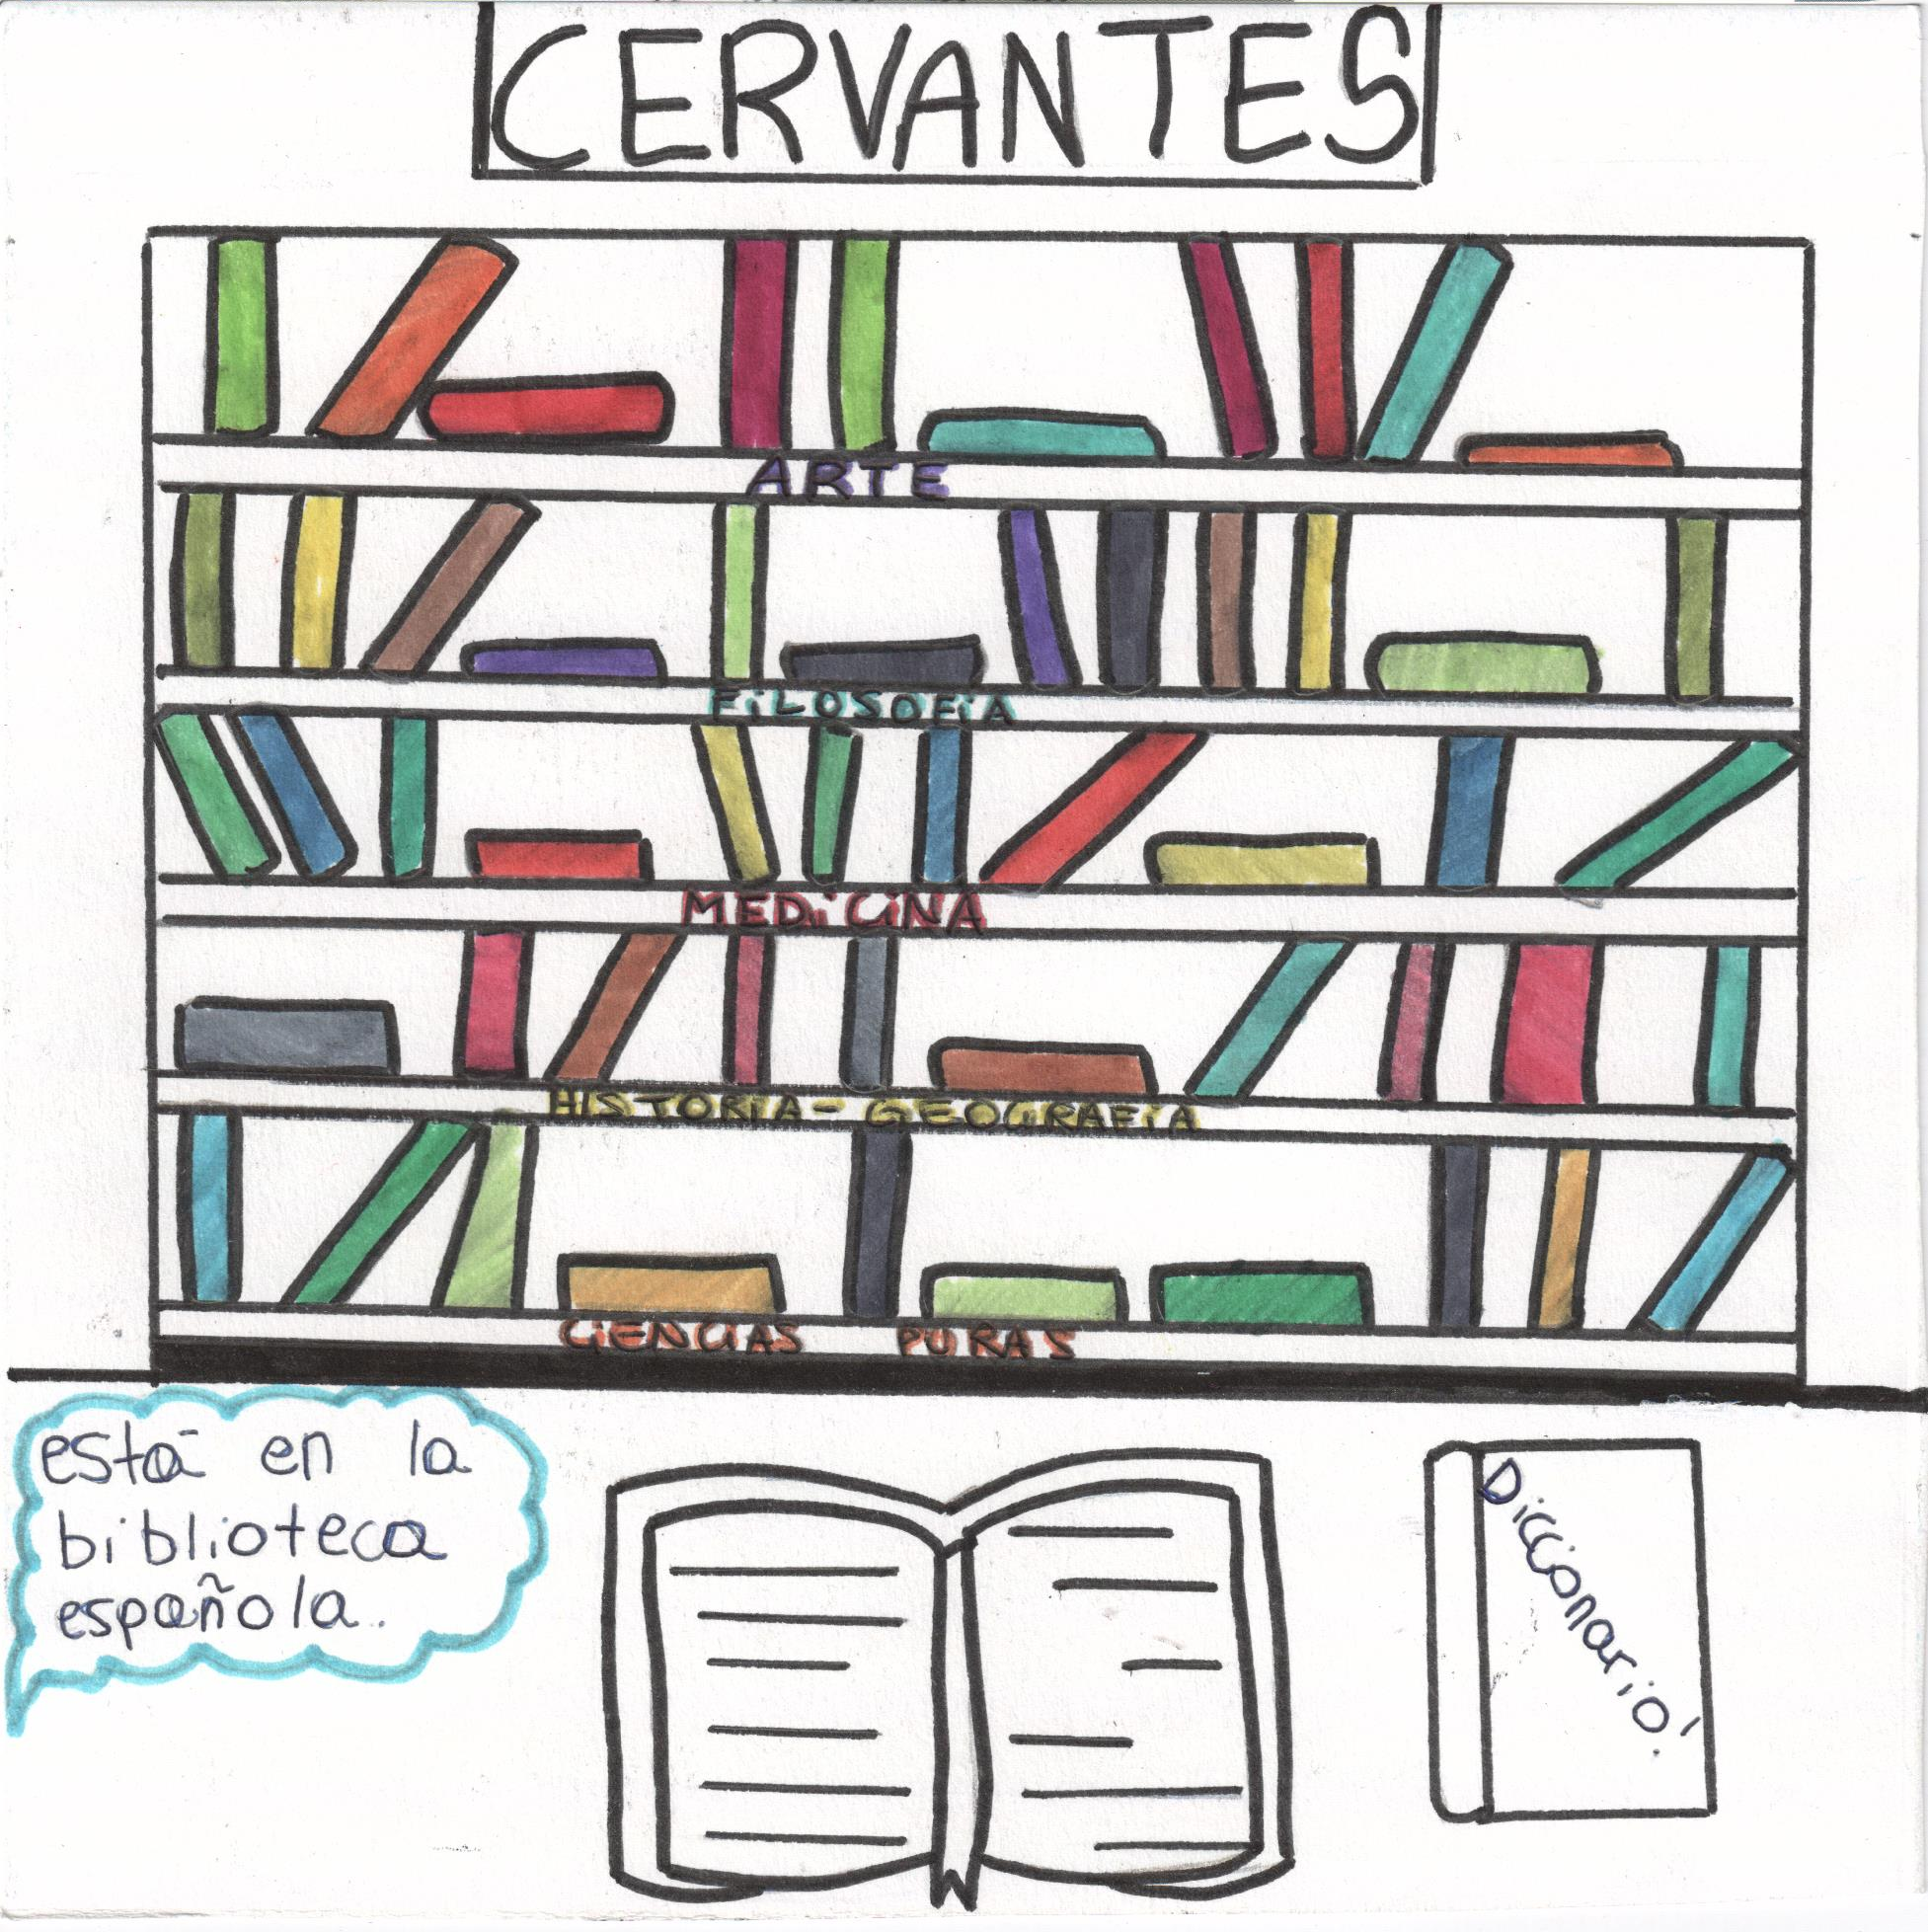 CERVANTES
ARTE
FiLOSOFiA
MEDiCiNA
HISTORiA - GEOGRAFiA
CiENCiAS PURAS
está en la
biblioteca
española.
Diccionario!